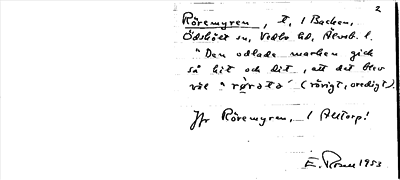 2
Röremyren, t, 1 Backen,
Ödskölt sn, Vedbo hd, Älvsb. l.
"Den odlade marken gick
så hit och dit, att det blev
väl "rørato" (rörigt, oredigt).
Jfr Röremyren, 1 Alltorp!
E. 1953